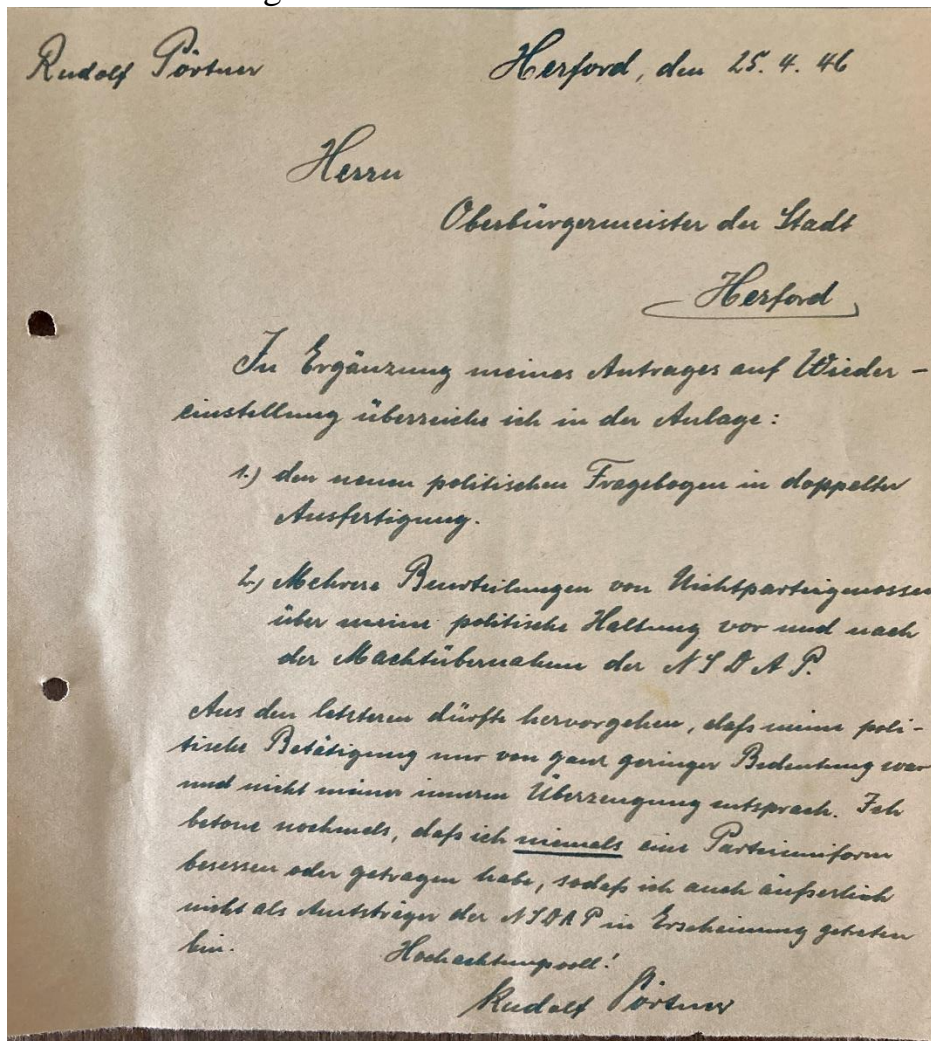 Rudolf Pörtner Herford, den 25. 4. 46
Herrn
Oberbürgermeister der Stadt
Herford
In Ergänzung meines Antrages auf Wieder-
einstellung überreiche ich in der Anlage:
1.) den neuen politischen Fragebogen in doppelter
Ausfertigung.
2.) Mehrere Beurteilungen von Nichtparteigenossen
über meine politische Haltung vor und nach
der Machtübernahme der NSDAP.
Aus den letzteren dürfte hervorgehen, daß meine poli-
tische Betätigung nur von ganz geringer Bedeutung war
und nicht meiner inneren Überzeugung entsprach. Ich
betone nochmals, daß ich niemals eine Parteiuniform
besessen oder getragen habe, sodaß ich auch äußerlich
nicht als Amtsträger der NSDAP in Erscheinung getreten
bin. Hochachtungsvoll!
Rudolf Pörtner